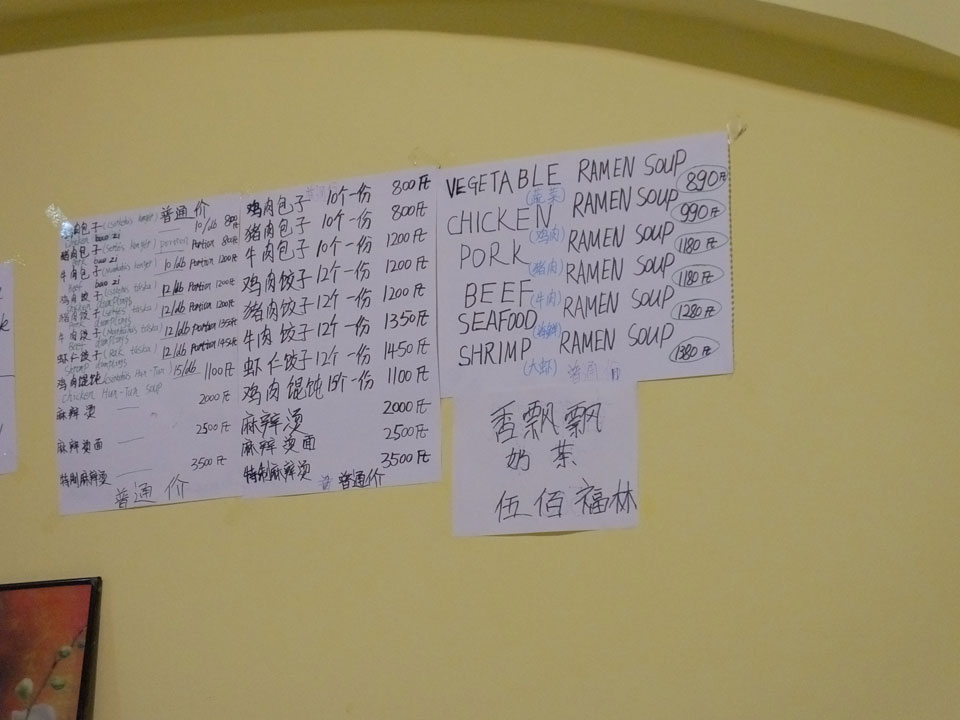 普通价
鸡肉包子 10/db 800
Chicken bao zi
猪肉包子 Portion 800Ft
bao zi
牛肉包子 10/db Portion 1200Ft
Beef bao zi
鸡肉饺子 12/db Portion 1200Ft
Chicken dumplings
猪肉饺子 12/db Portion 1200Ft
Pork dumplings
牛肉饺子 12/db Portion 1350Ft
Beef dumplings
虾仁饺子 (Rák táska) 12/db Portion 1450Ft
Shrimp dumplings
鸡肉馄饨 15/db 1100Ft
Chicken Hun-Tun Soup
麻辣烫 2000Ft
麻辣烫面 2500Ft
特制麻辣烫 3500Ft
普通价
鸡肉包子 10个一份 800Ft
猪肉包子 10个一份 800Ft
牛肉包子 10个一份 1200Ft
鸡肉饺子 12个一份 1200Ft
猪肉饺子 12个一份 1200Ft
牛肉饺子 12个一份 1350Ft
虾仁饺子 12个一份 1450Ft
鸡肉馄饨 15个一份 1100Ft
麻辣烫 2000Ft
麻辣烫面 2500Ft
特制麻辣烫 3500Ft
普通价
VEGETABLE RAMEN SOUP 890Ft
(蔬菜)
CHICKEN RAMEN SOUP 990Ft
(鸡肉)
PORK RAMEN SOUP 1180Ft
(猪肉)
BEEF RAMEN SOUP 1180Ft
(牛肉)
SEAFOOD RAMEN SOUP 1280Ft
(海鲜)
SHRIMP RAMEN SOUP 1380Ft
(大虾) 普通
香飘飘
奶茶
伍佰福林